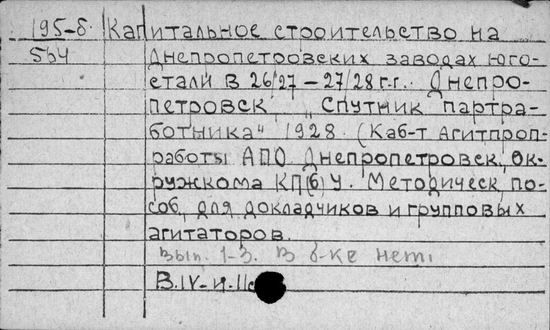 195-б. Капитальное строительство на
564 Днепропетровских заводах Юго-
стали в 26/27 – 27/28 г.г. Днепро-
петровск, „Спутник партра-
ботника" 1928. (Каб-т Агитпроп-
работы АПО Днепропетровск. Ок-
ружкома КП(б)У. Методическ. по-
соб. для докладчиков и групповых
агитаторов.
Вып. 1-3. В б-ке нет.
В.IV-и-II